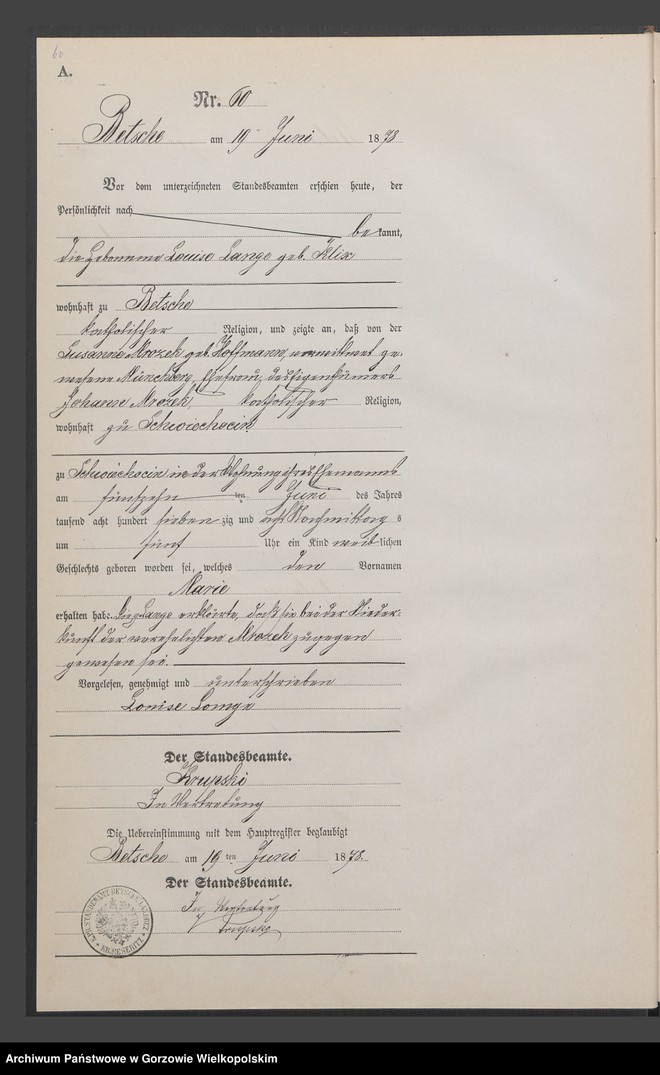 60
A.
Nr. 60
Betsche am 19 Juni 1878
Vor dem unterzeichneten Standesbeamten erschien heute, der
Persönlichkeit nach
bekannt,
die Hebamme Louise Lange geb. Klix
wohnhaft zu Betsche
katholischer Religion, und zeigte an, daß von der
Susanne Mrozek geb. Hoffmann, verwittwet ge-
wesene Münchberg, Ehefrau des Eigenthümers
Johann Mrozek, katholischer Religion,
wohnhaft zu Schwiechocin
zu Schwiechocin in der Wohnung ihres Ehemanns
am fünfzehn ten Juni des Jahres
tausend acht hundert siebenzig und acht Nachmittags
um fünf Uhr ein Kind weiblichen
Geschlechts geboren worden sei, welches den Vornamen
Marie
erhalten habe. Die Lange erklärte, daß sie bei der Nieder-
kunft der verehelichten Mrozek zugegen
gewesen sei.
Vorgelesen, genehmigt und unterschrieben
Louise Lange
Der Standesbeamte.
Krupski
In Vertretung
Die Uebereinstimmung mit dem Hauptregister beglaubigt
Betsche am 19ten Juni 1878.
Der Standesbeamte.
In Vertretung
Krupski
KR. MESERITZ
Archiwum Państwowe w Gorzowie Wielkopolskim